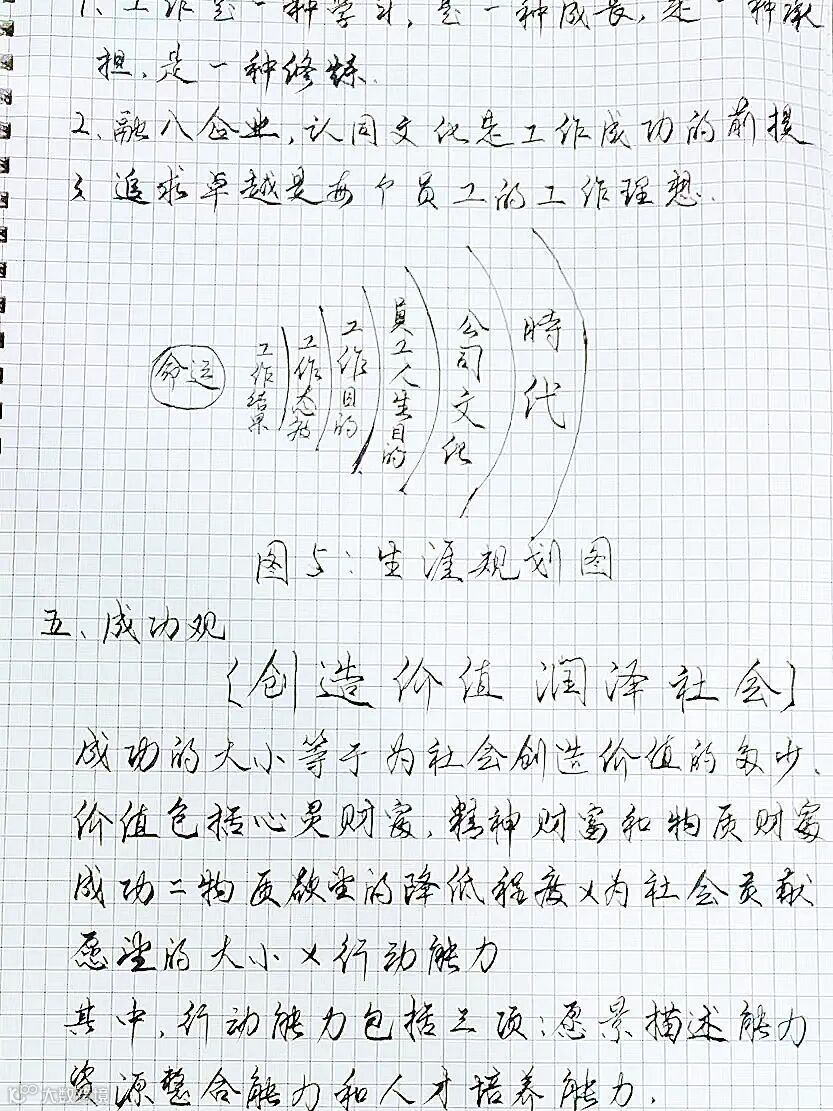 1、工作是一种学习，是一种成长，是一种承
担，是一种修炼.
2、融入企业，认同文化是工作成功的前提
3、追求卓越是每个员工的工作理想.
命运
工作结果
工作态度
工作目的
員工人生目的
公司文化
時代
图5：生涯规划图
五、成功观
〔创造价值 润泽社会〕
成功的大小等于为社会创造价值的多少.
价值包括心灵财富，精神财富和物质财富
成功=物质欲望的降低程度×为社会贡献
愿望的大小×行动能力
其中，行动能力包括三项：愿景描述能力
资源整合能力和人才培养能力.